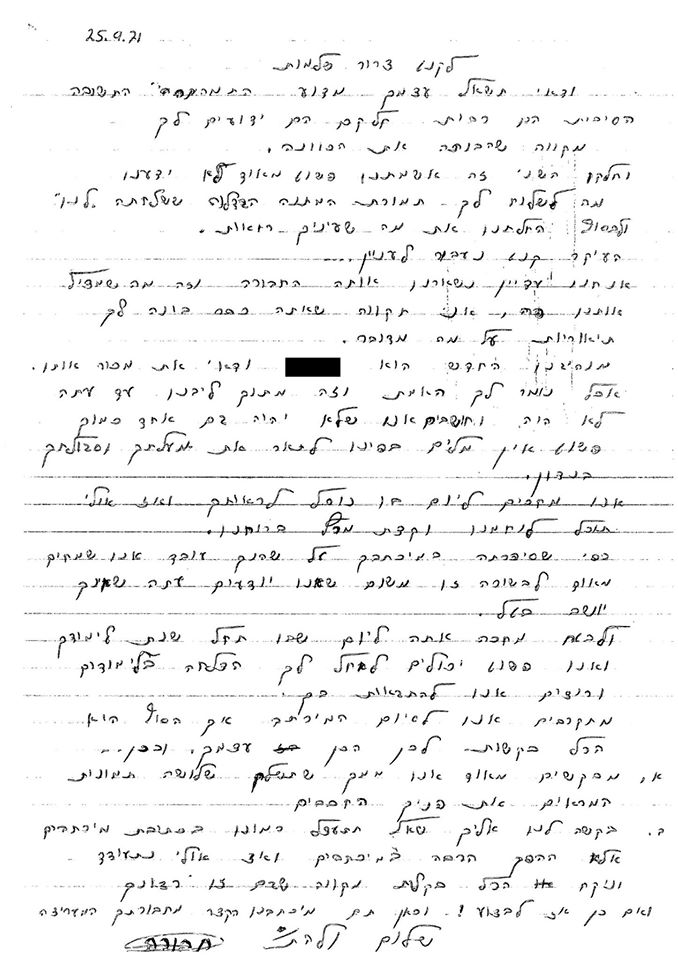 25.9.71
לקנט צרור שלמות
ודאי תשאל עצמך מדוע התשובה
הסיבות הן רבות חלקם הם ידועים לך
מקווה שהבותה את הכוונה.
וחלקו השני זה אשמתנו פשוט מאוד לא ידענו
מה לשלוח לך תמורת המתנה הגדולה ששלחתה לנו"
ולבסוף החלטנו את מה שעיניך רואות.
העיקר קנט נעבור לעניין
אנחנו עדיין נשארנו אותה החבורה וזה מה שמגדיל
אותנו, אני תקווה שאתה כבר בונה לך
תיאוריות על מה מדובר.
מנהיגנו החדש הוא ודאי את מכור אותו.
אבל נומר לך האמת וזה מתוך ליבנו עד עתה
לא היה וחושבים אנו שלא יהיה גם אחד כמוך
פשוט אין מלים בפינו לתאר את מעלתך וסגולתך
בנדון.
אנו מחכים ליום בו נוכל לראותך ואז אולי
תוכל לנחמנו וקצת ברוחנו.
כפי שסיפרתה במיכתבך על שהנך עובד אנו שמחים
מאוד לבשורה זו משום שאנו יודעים עתה שאינך
יושב בטל.
ולבטח מחכה אתה ליום שבו תחל שנת לימודך
ואנו פשוט יכולים לאחל לך הצלחה בלימודים
ורוצים אנו להתגאות בך.
מתקרבים אנו לסיום המיכתב אך הסוף הוא
הכל בקשות לכן הכן עצמך, ובכן..
א, מבקשים מאוד אנו ממך שתשלח שלושה תמונות
המראים את פניך החסבים
ב. בקשה לנו אליך שאל תתעצל כמונו בכתיבת מיכתבים
אלא ההפך הרבה במיכתבים ואז אולי נתעודד
וניקח הכל בקלות מקווה שגם זו רצונך
ואם כן אז לבצוע! וכאן תם מיכתבנו הקצר מחבורתך המעריצה
שלום ולהת'
חבורה